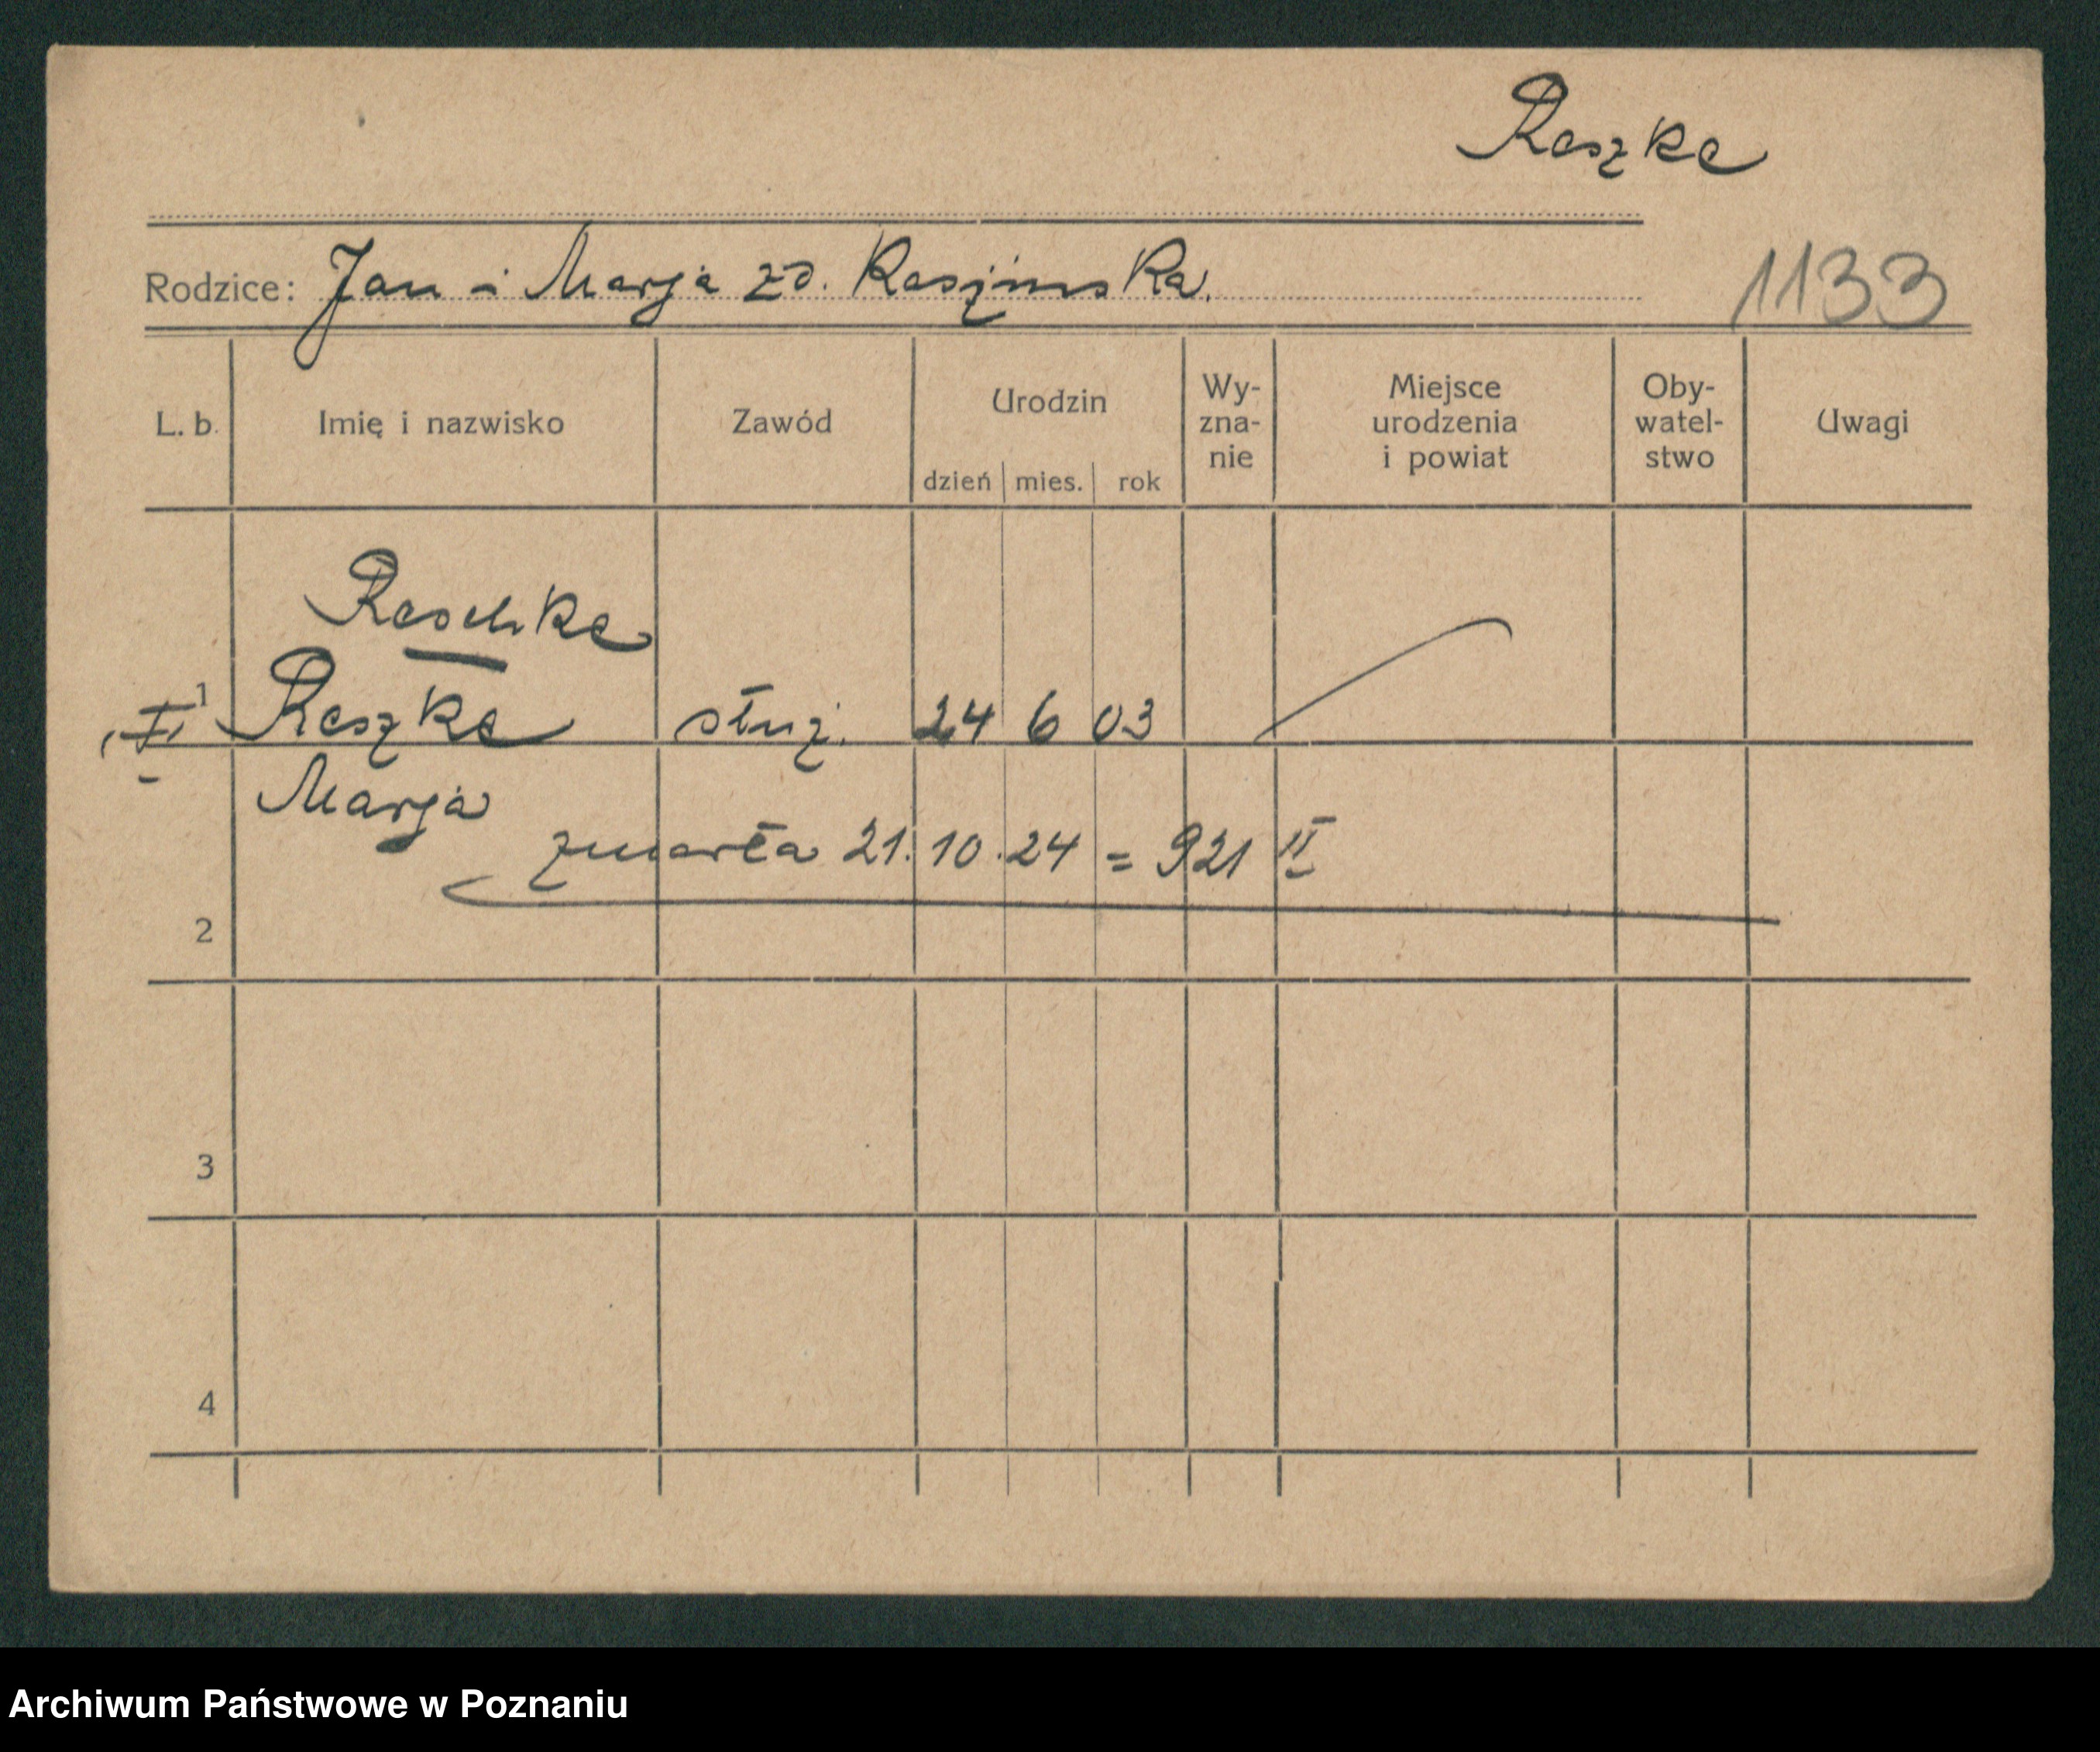 Reszke
Rodzice: Jan i Marja zd.
1133
L. b. Imię i nazwisko Zawód Urodzin dzień mies. rok Wy- zna- nie Miejsce urodzenia i powiat Oby- watel- stwo Uwagi
Reschke
1 Reszke służ. 24 6 03
Marja
zmarła 21. 10. 24 = 921 II
2
3
4
Archiwum Państwowe w Poznaniu